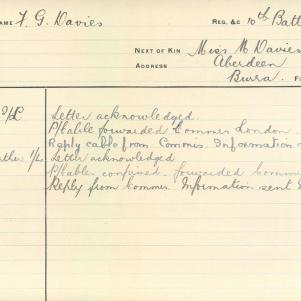 NAME F. G. Davies REG. &c 10th Batt
NEXT OF KIN Miss M Davies
ADDRESS Aberdeen
Burra. F
Letter acknowledged.
P/cable forwarded Commrs London
Reply cable from Commrs. Information
ather 1/L Letter acknowledged
P/cables confirmed. forwarded Comm
Reply from Commrs Information sent